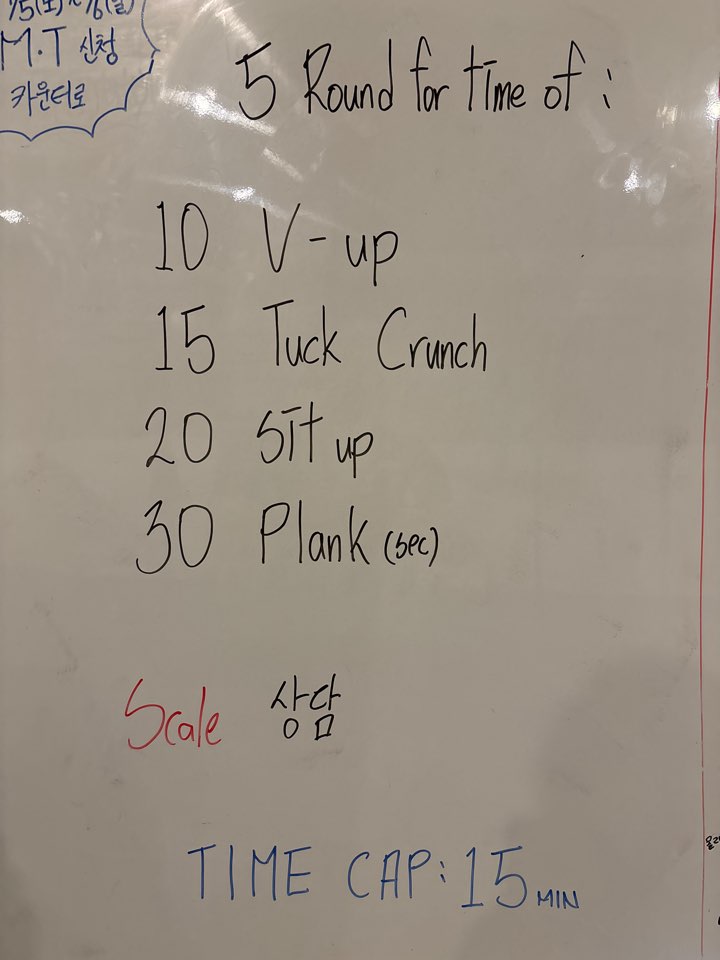 /5(토)~/6(일)
M.T 신청
카운터로
5 Round for time of :
10 V-up
15 Tuck Crunch
20 Sit up
30 Plank (sec)
Scale 상담
TIME CAP: 15 MIN